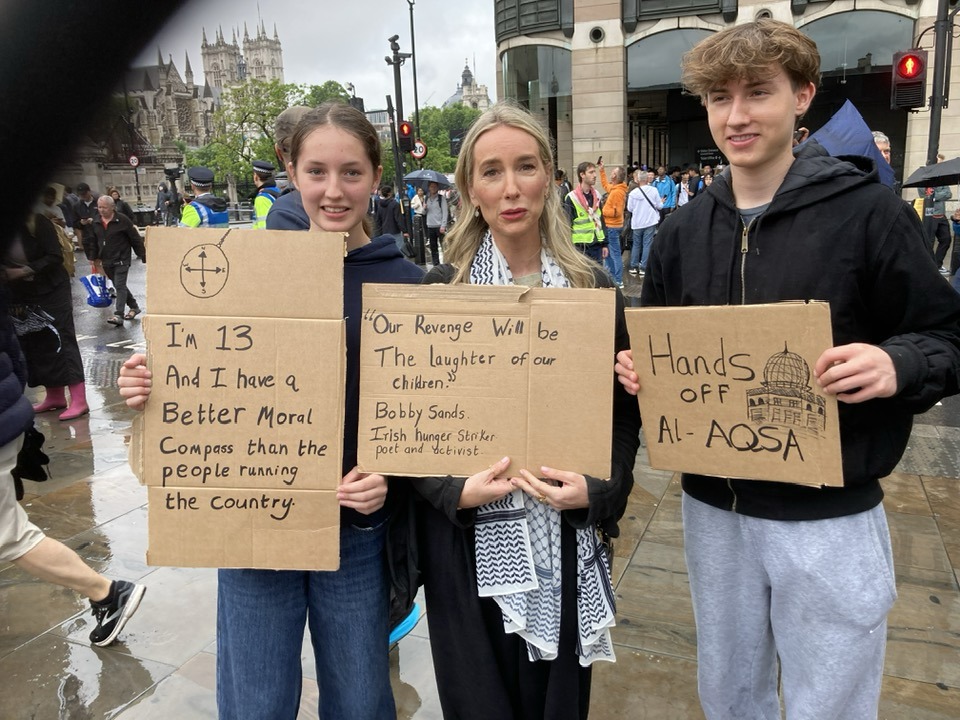 N
E
S
I'm 13
And I have a
Better Moral
Compass than the
people running
the country.
"Our Revenge Will be
The laughter of our
children."
Bobby Sands.
Irish hunger Striker
poet and activist
Hands
OFF
Al-AQSA
20